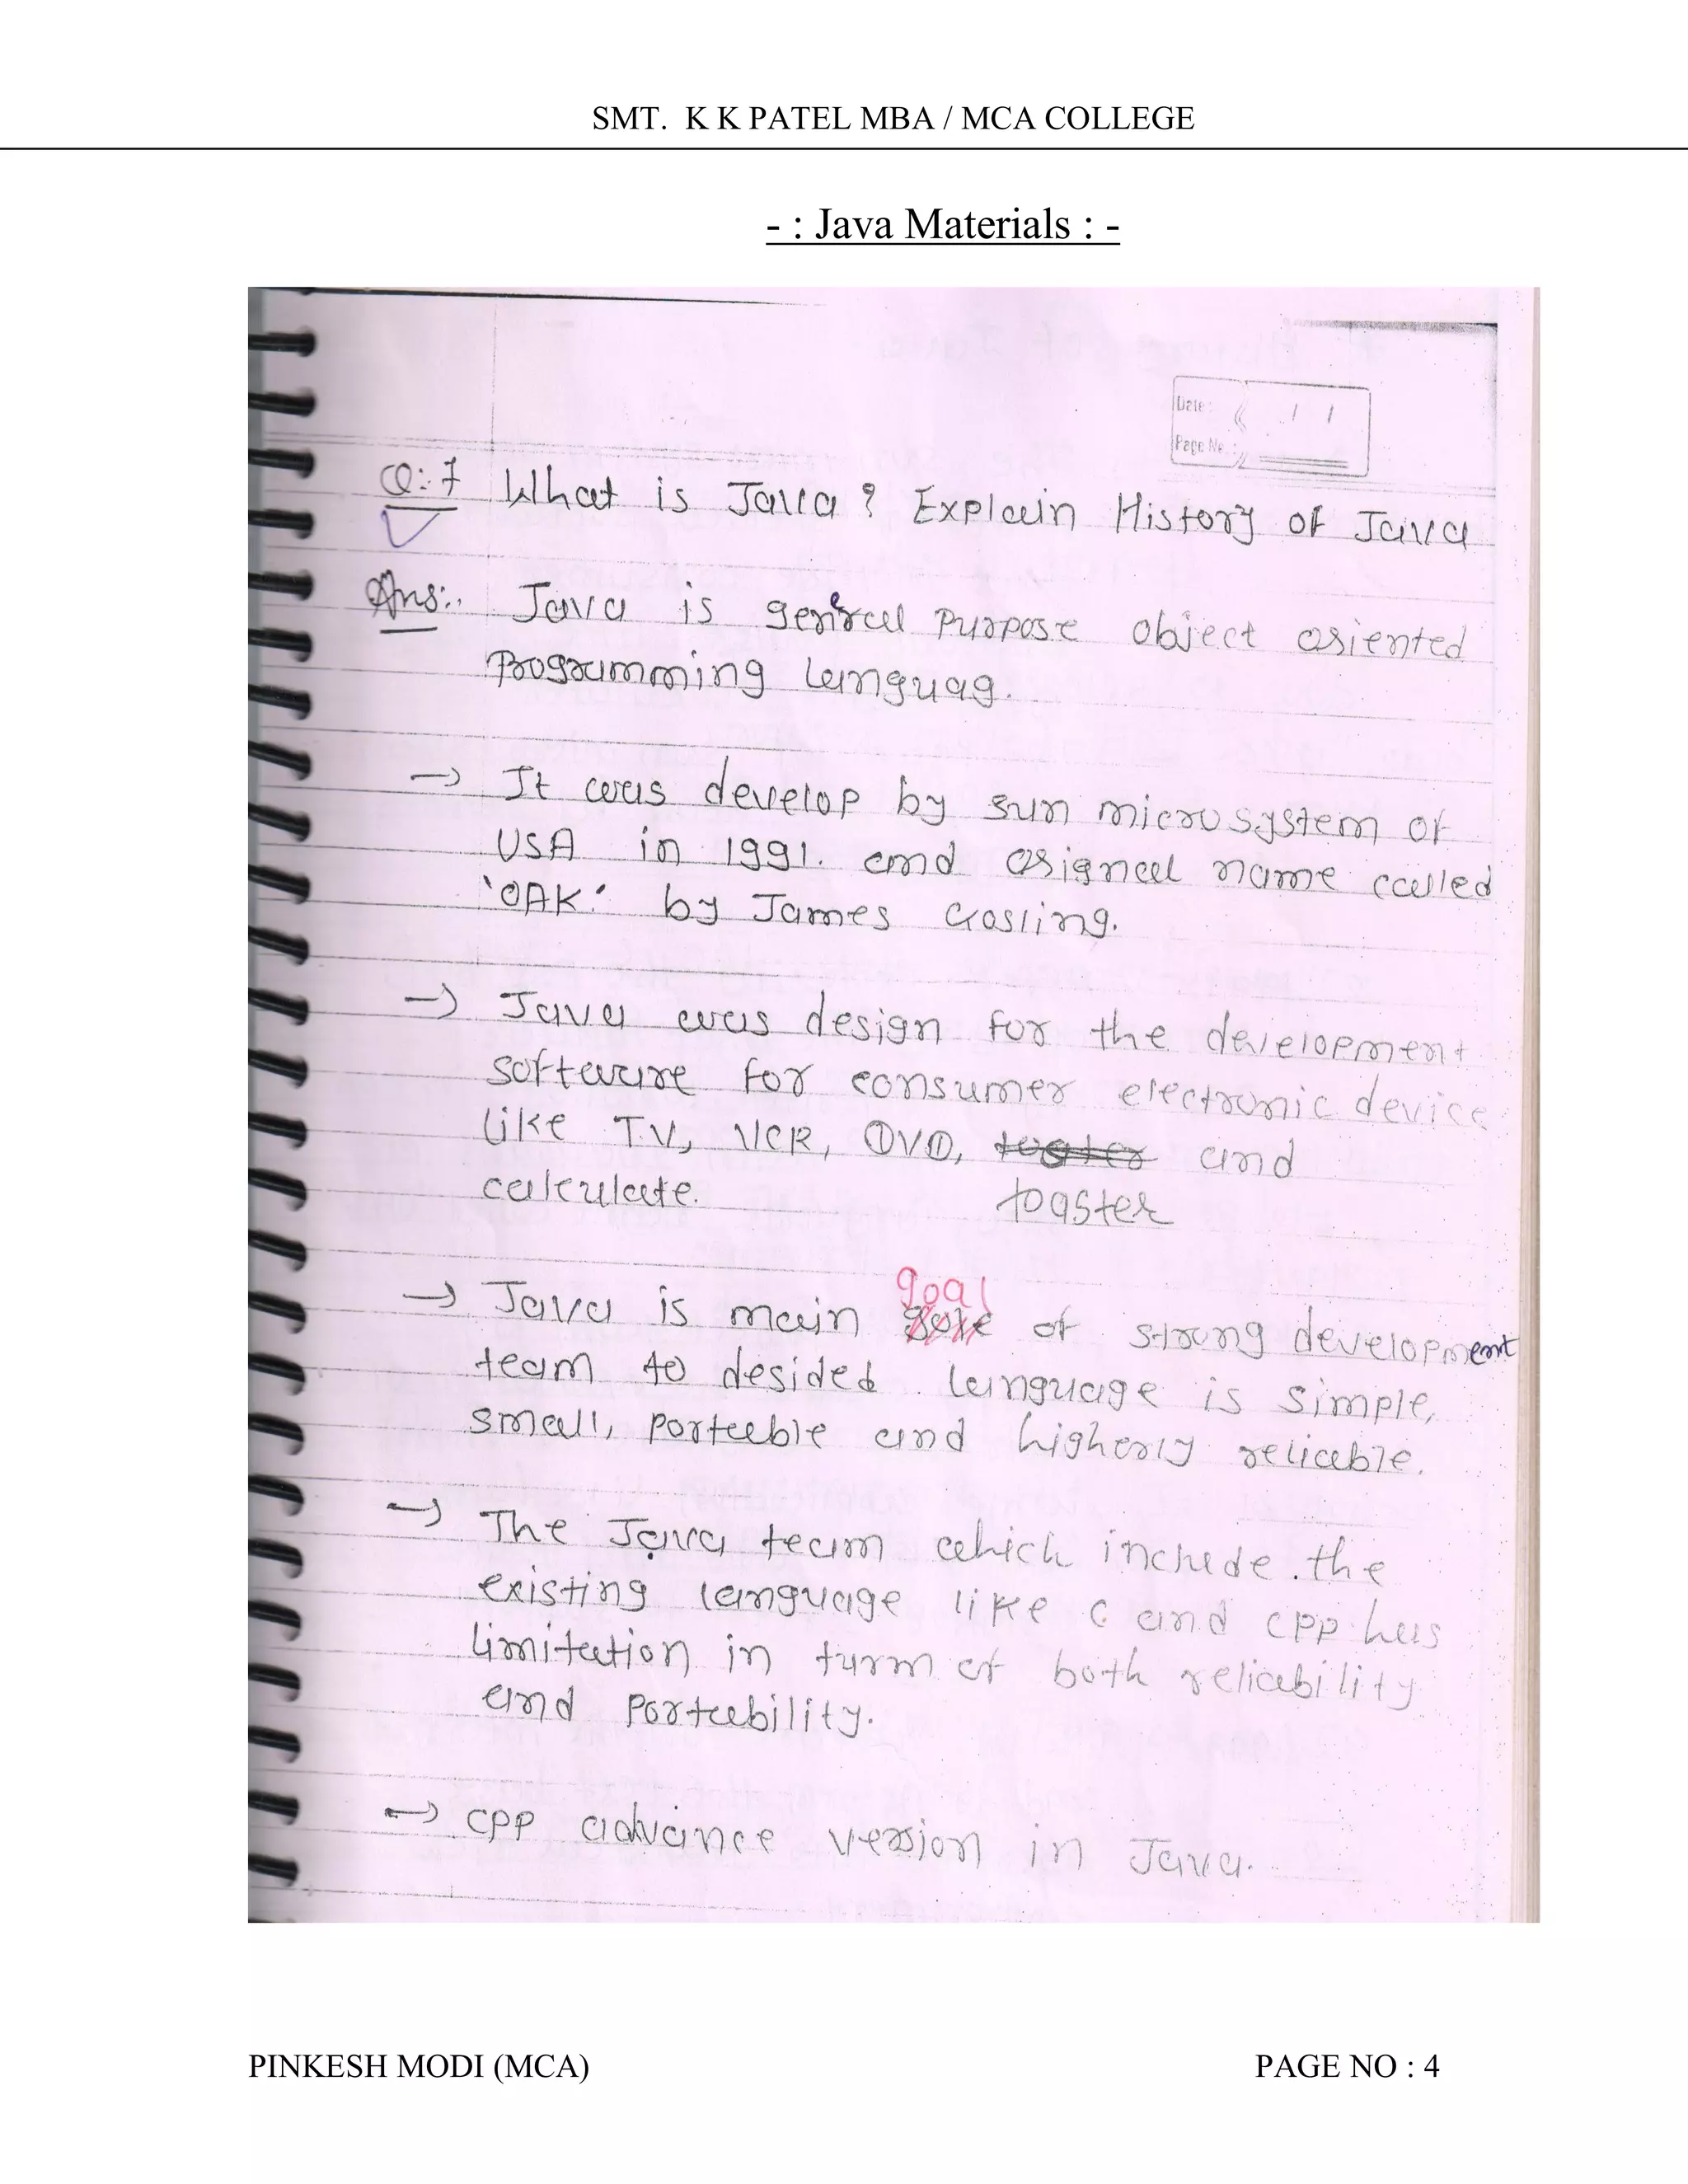 SMT. K K PATEL MBA / MCA COLLEGE
- : Java Materials : -
Date : / /
Page No. :
Q:7 What is Java? Explain History of Java
Ans:. Java is general Purpose object oriented
Programming languag.
→ It was develop by sun microsystem of
USA in 1991. and orignal name called
'OAK' by James Gosling.
→ Java was design for the development
software for consumer electronic device
like T.V, VCR, DVD, toster and
calculate. toaster
goal
→ Java is main gole of strong development
team to desided language is simple,
small, portable and higherly reliable.
→ The Java team which include the
existing language like C and cpp has
limitation in turm of both reliability
and portability.
→ cpp advance version in Java.
PINKESH MODI (MCA) PAGE NO : 4